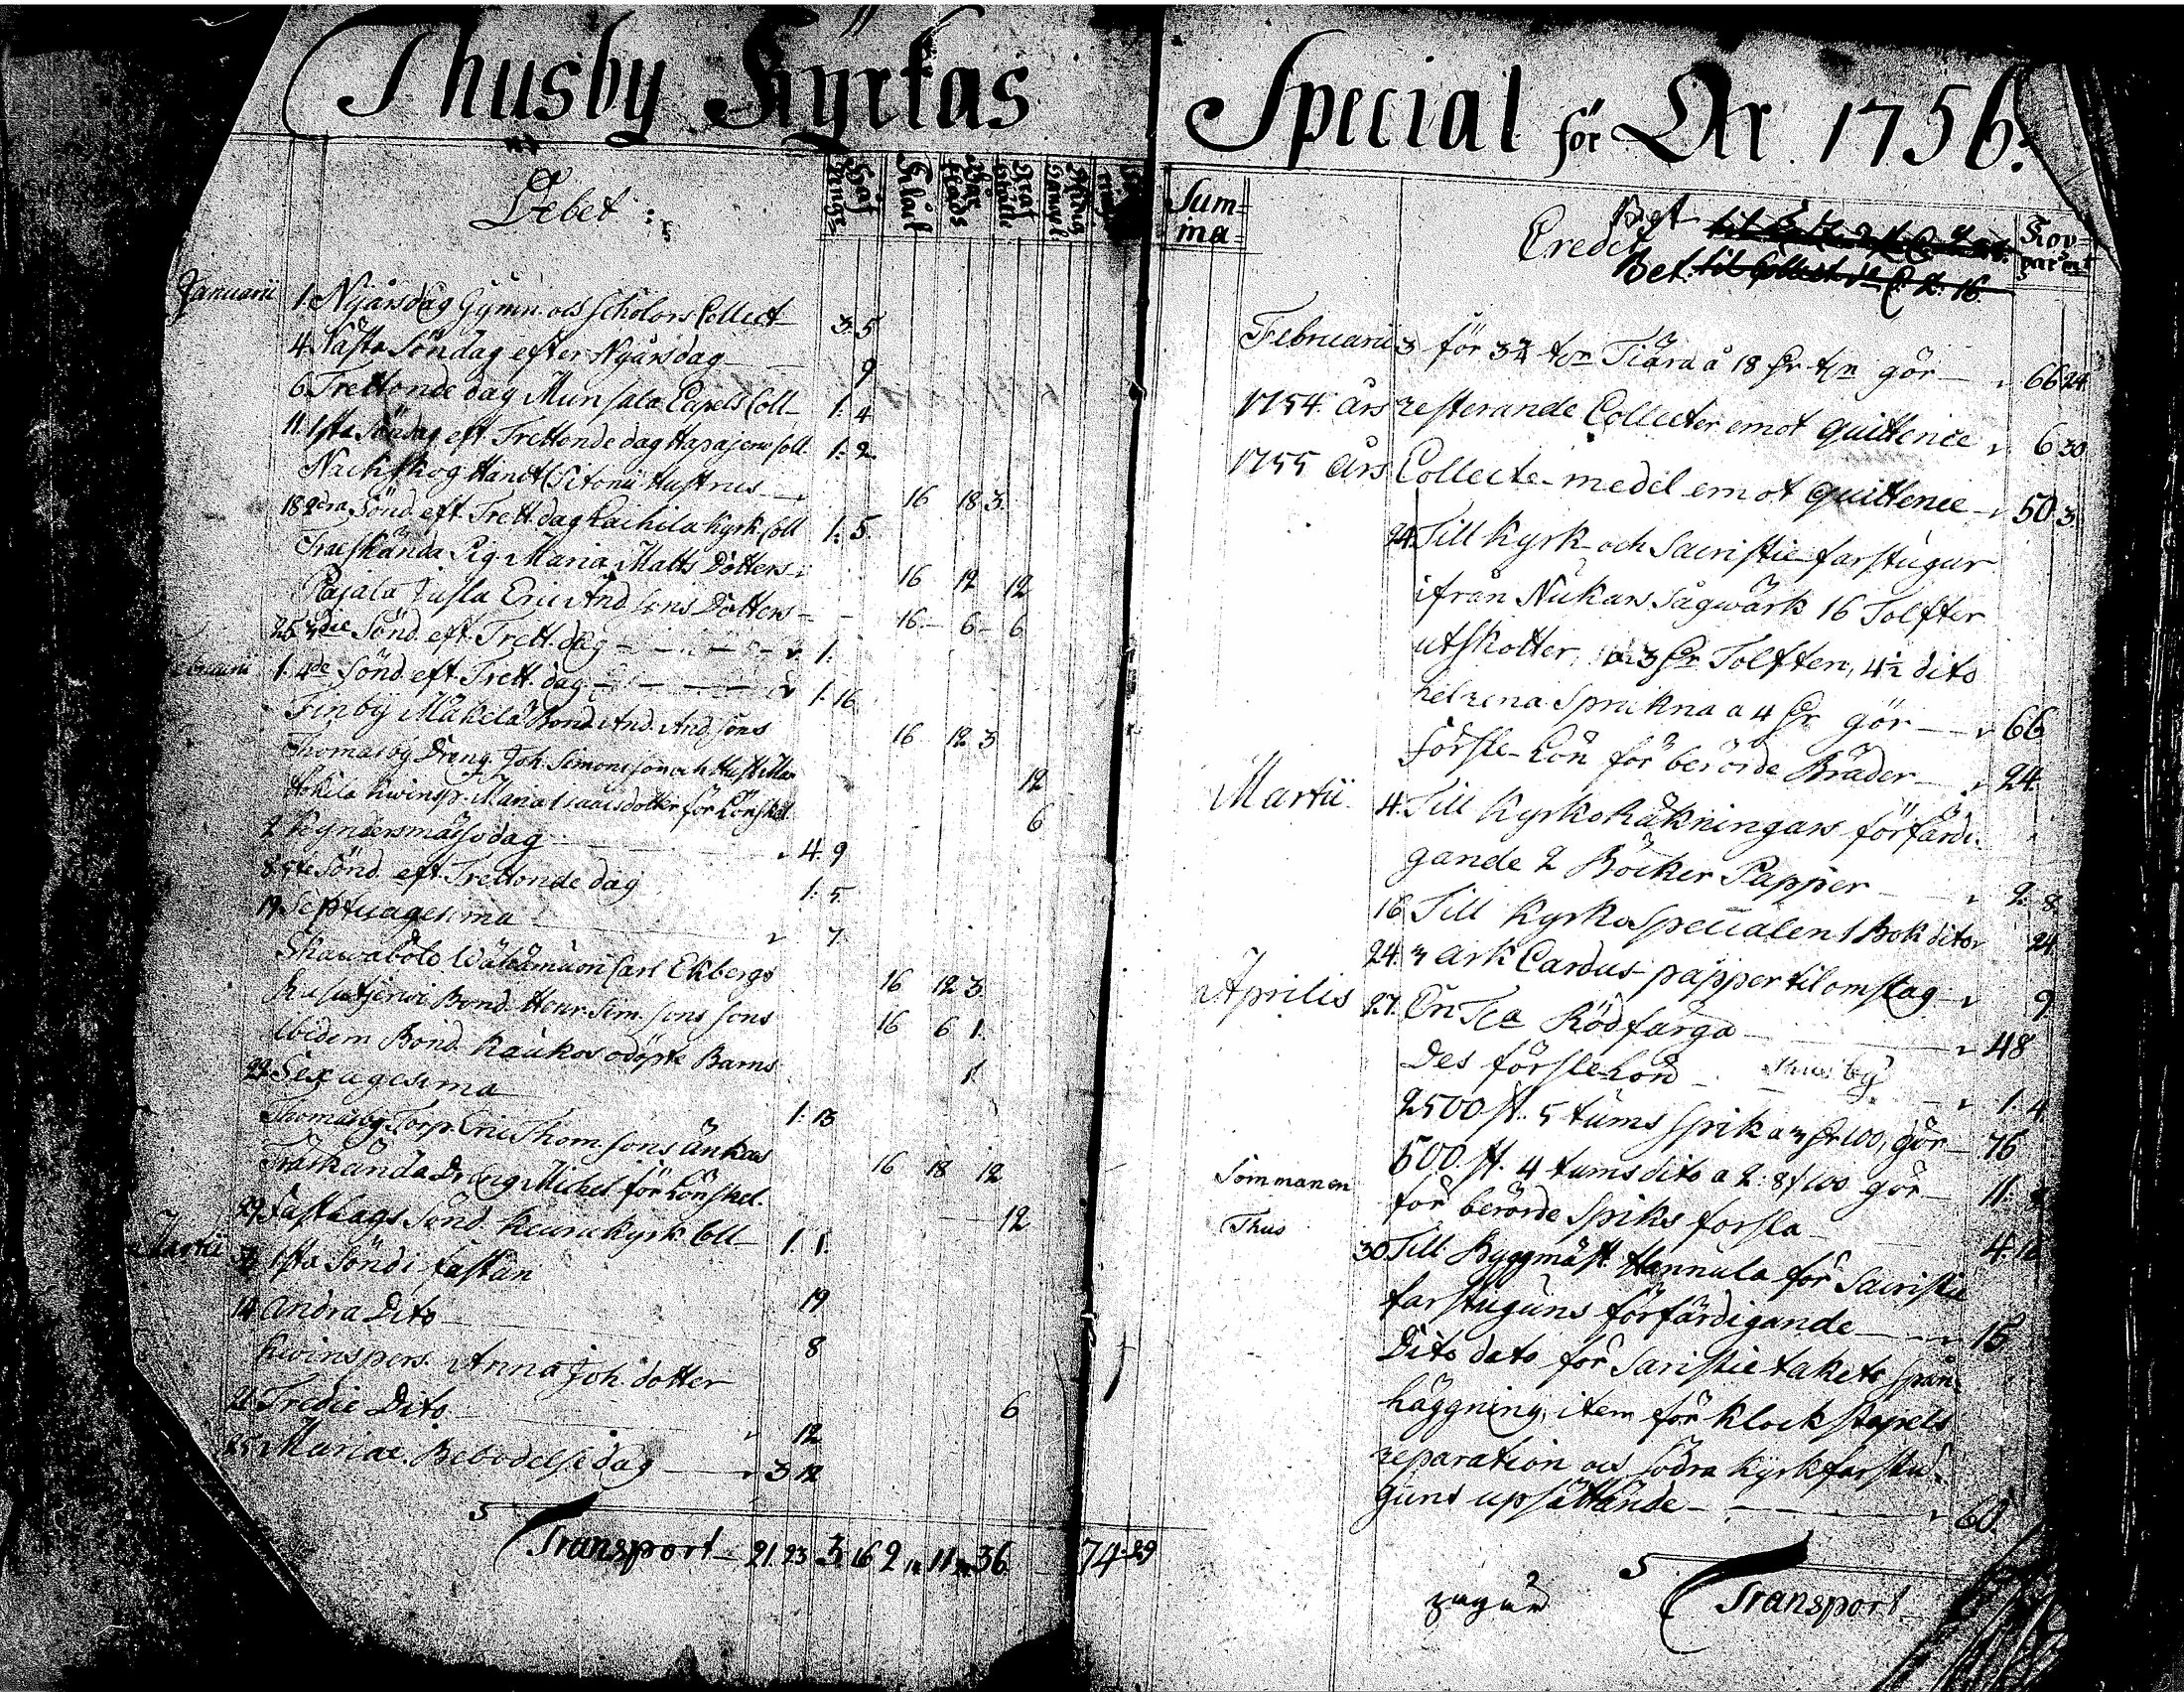 Thusby Kyrkas
Debet
Håf
Pengr
Januarii 1. Nyårsdag Gymn. och Scholors Collect 3. 5
4. Nästa Söndag efter Nyårsdag 9
6. Trettonde dag Munsala Capels Coll 1. 4
11. 1sta Söndag eft. Trettonde dag Coll 1. 2
Hustrus 16 18 3.
18. 2dra Sönd. eft. Trett. dag Kyrk. Coll 1. 5.
Träskända Pig. Maria Matts Dotters 16 12 12
Pajala Eric And. sons Dotters 16 6 6
25. 3die Sönd. eft. Trett. dag 1.
1. 4de Sönd. eft. Trett. dag 1. 16
Finby Mäkelä Bond. And. And. sons 16 12 3
Thomasby Dreng. Joh. Simonsson och Hust. 12
Kwinsp. Maria Isaacsdotter för Lönskel. 6
2. Kyndersmässodag 4. 9
8. 5te Sönd. eft. Trettonde dag 1. 5
Septuagesima 7.
Skawaböle Carl Ekbergs 16 12 3
Bond. Henr. Sim. sons sons 16 6 1.
Ibidem Bond. Kaukos odöpte Barns 1
22. Sexagesima 1. 13
Thomasby Torp. Eric Thom. sons änkas 16 18 12
Träskända Dreng Mickel för Lönskel. 12
29. Fastlags Sönd. Keuru Kyrk. Coll 1. 1.
Martii 1sta Sönd. i fastan 19
14. Andra Dito 8
Kwinspers. Anna Joh. dotter 6
21. Tredie Dito 12
25. Mariae Bebodelsedag 3 12
Transport 21. 23 3. 16 2 11 36. 74. 29
Special för År 1756.
Sum=
ma
Credit
Bet.
Februarii 3 för tn Tiära à 18 gör 66 24.
1754. års resterande Collecter emot quittence 6. 30
1755 års Collecte-medel emot quittence 50. 3.
24. Till Kyrk- och Sacristie-farstugur
ifrån Nukars Sågwärk 16 Tolfter
utskotter, a 3 Tolften, 4½ dito
helrena Sprukna a 4 gör 66
Forsle-Lön för berörde Bräder 24.
Martii 4. Till Kyrko Räkningars förfärdi-
gande 2 Böcker Papper 2. 8.
16. Till Kyrko Specialen 1 Bok dito 24
24. 3 ark Cardus-papper til omslag 9
Aprilis 27. En Rödfärga 48
Des forslelön 1. 4
2500 st. 5 tums Spik a 3 100, gör 76
500. st. 4 tums dito a 2. 8 100 gör 11.
för berörde Spiks forsla 4. 16
Sommanen
Thus
30. Till Byggmäst. Hannula för Sacristie
farstuguns förfärdigande 15
Dito dato för Saristie takets spån-
häggning, item för Klockstapels
reparation och södra Kyrkfarstu-
guns upsättande 60.
Transport